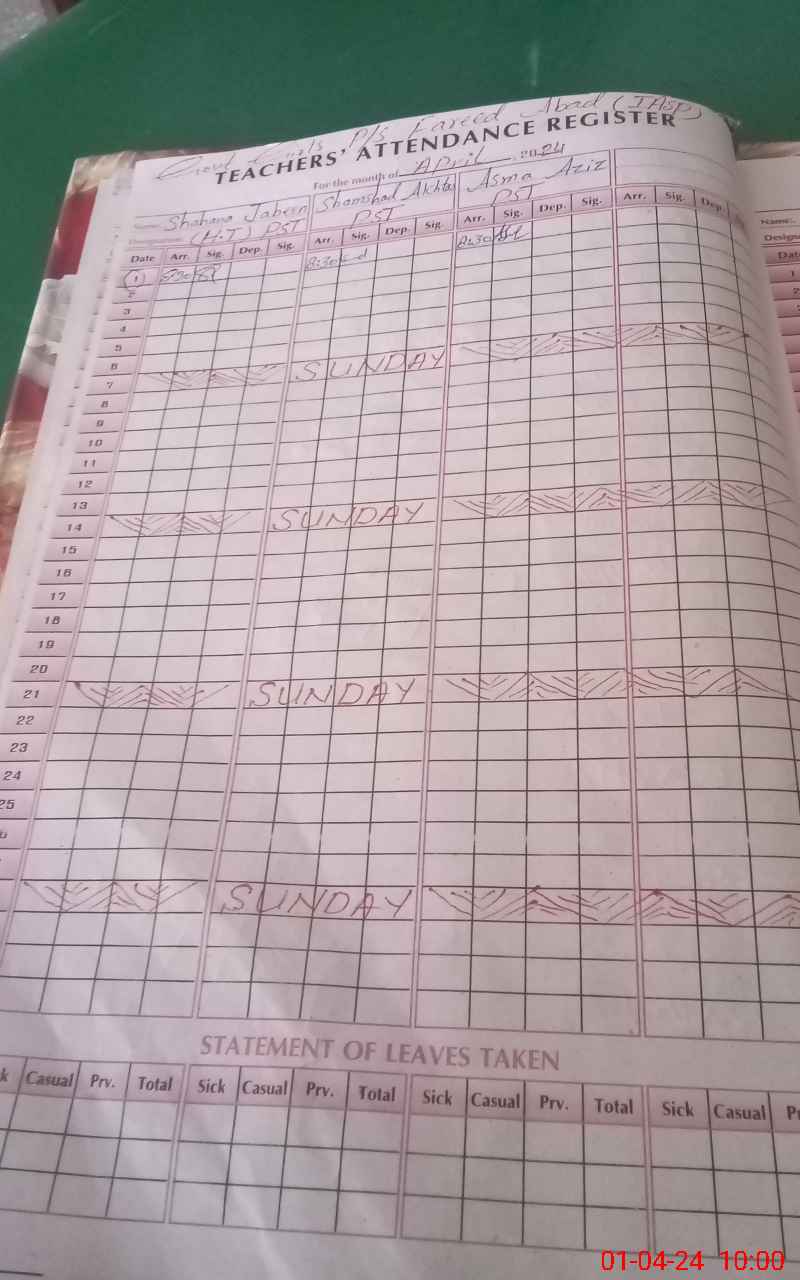 Govt Girls P/S Fareed Abad (IAsp)
TEACHERS' ATTENDANCE REGISTER
For the month of April 2024
Name: Shahana Jabeen Shamshad Akhtar Asma Aziz
(H.T) PST PST PST
Date Arr. Sig. Dep. Sig. Arr. Sig. Dep. Sig. Arr. Sig. Dep. Sig. Arr. Sig. Dep.
1 8:30 8:30 8:30
2
3
4
5
6
7 SUNDAY
8
9
10
11
12
13
14 SUNDAY
15
16
17
18
19
20
21 SUNDAY
22
23
24
25
SUNDAY
STATEMENT OF LEAVES TAKEN
Casual Prv. Total Sick Casual Prv. Total Sick Casual Prv. Total Sick Casual
Name:
Date
1
2
01-04-24 10:00